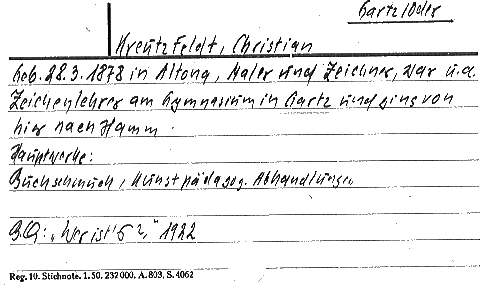 Gartz/Oder
Kreutzfeldt, Christian
Geb. 28.3.1878 in Altona, Maler und Zeichner, war u.a.
Zeichenlehrer am Gymnasium in Gartz und ging von
hier nach Hamm.
Hauptwerke:
Buchschmuck, Kunstpädagog. Abhandlungen
B.Q.: „Wer ist's?" 1922
Reg. 10. Stichnote. 1.50. 232000. A. 803, S. 4062